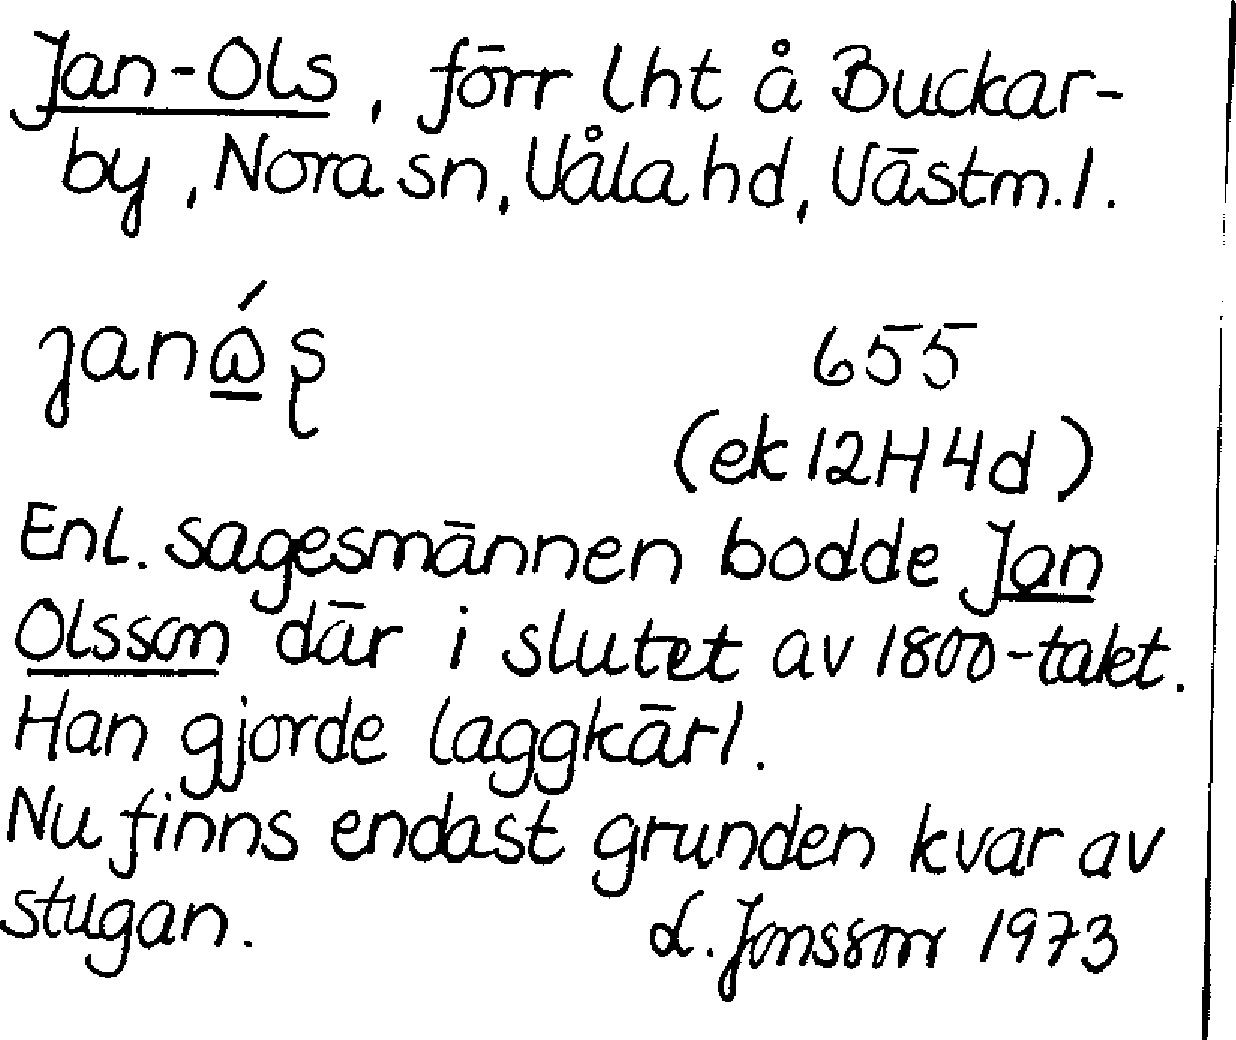 Jan-Ols, förr lht å Buckar-
by, Nora sn, Våla hd, Västm. l.
655
(ek 12H4d)
Enl. sagesmännen bodde Jan
Olsson där i slutet av 1800-talet.
Han gjorde laggkärl.
Nu finns endast grunden kvar av
stugan.
L. Jonsson 1973